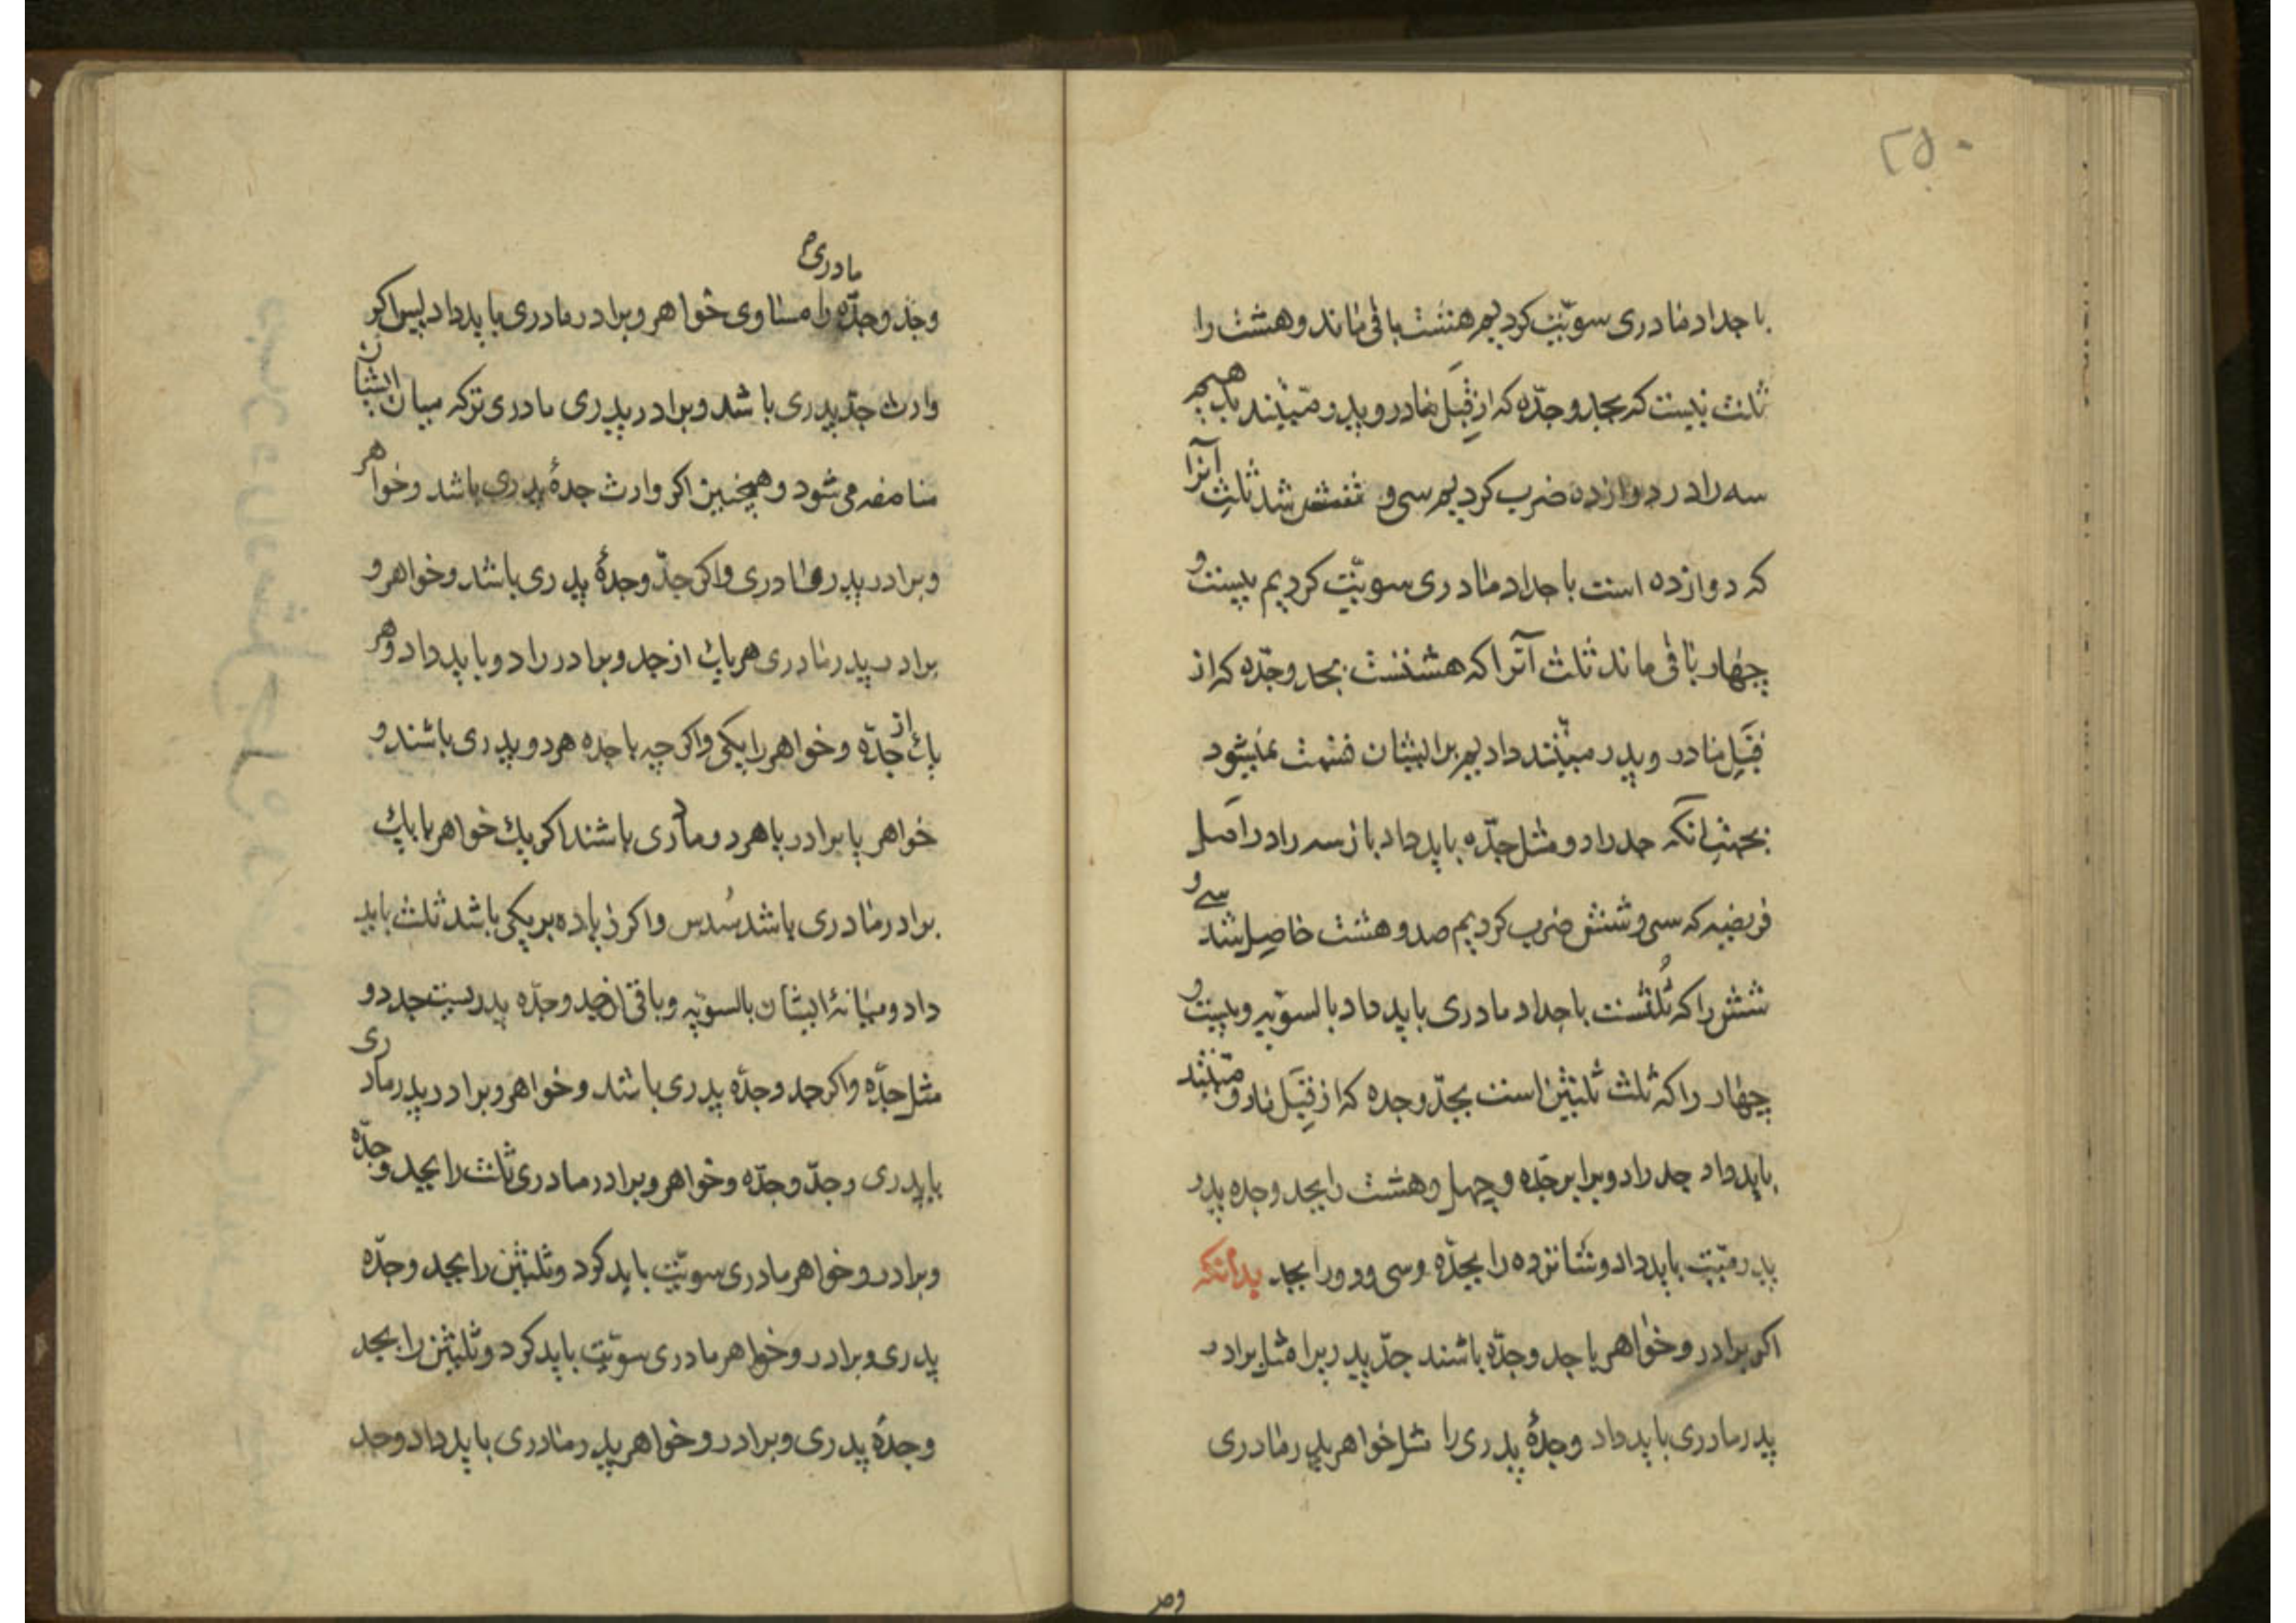 ۲۵۰
با جداد مادری سویّت کردیم هشت باقی ماند و هشت را
ثلث نیست که بجد و جدّه که از قِبَل مادر و پدر متیّند بدهیم
سه را در دوازده ضرب کردیم سی و شش شد ثلث آنرا
که دوازده است با جداد مادری سویّت کردیم بیست و
چهار باقی ماند ثلث آنرا که هشتست بجد و جدّه که از
قِبَل مادر و پدر میّتند دادیم بر ایشان قسمت نمیشود
بجهت آنکه جد را دو مثل جدّه باید داد باز سه را در اصل
فریضه که سی و شش ضرب کردیم صد و هشت حاصل شد سی و
شش را که ثُلثست باجداد مادری باید داد بالسویّه و بیست و
چهار را که ثلث ثلثین است بجدّ و جده که از قِبَل مادر میّتند
باید داد جد را دو برابر جدّه و چهل و هشت را بجد و جده پدر
پدر میّت باید داد و شانزده را بجدّه و سی و دو را بجد بدانکه
اکر برادر و خواهر با جد و جدّه باشند جدّ پدریرا مثل برادر
پدر مادری باید داد و جدهٔ پدری را مثل خواهر پدر مادری
وجد
و جد و جدّه مادری را مساوی خواهر و برادر مادری باید داد پس اکر
وارث جدّ پدری باشد و برادر پدری مادری ترکه میان ایشان
مناصفه می شود و همچنین اکر وارث جدهٔ پدری باشد و خواهر
و برادر پدری مادری و اکر جدّ و جدهٔ پدری باشد و خواهر و
برادر پدر مادری هر یک از جد و برادر را دو باید داد و هر
یک از جدّه و خواهر را یکی و اکر چه با جده هر دو پدری باشند و
خواهر یا برادر یا هر دو مادری باشند اکر یک خواهر یا یک
برادر مادری باشد سُدس و اکر زیاده بر یکی باشد ثلث باید
داد و میانهٔ ایشان بالسویّه و باقی از جد و جدّه پدریست جد دو
مثل جدّه و اکر جد و جدّه پدری باشد و خواهر و برادر پدر مادری
یا پدری و جدّ و جدّه و خواهر و برادر مادری ثلث را بجد و جدّه
و برادر و خواهر مادری سویّت باید کرد و ثلثین را بجد و جدّه
پدری و برادر و خواهر مادری سویّت باید کرد و ثلثین را بجد
و جدهٔ پدری و برادر و خواهر پدر مادری باید داد و جد